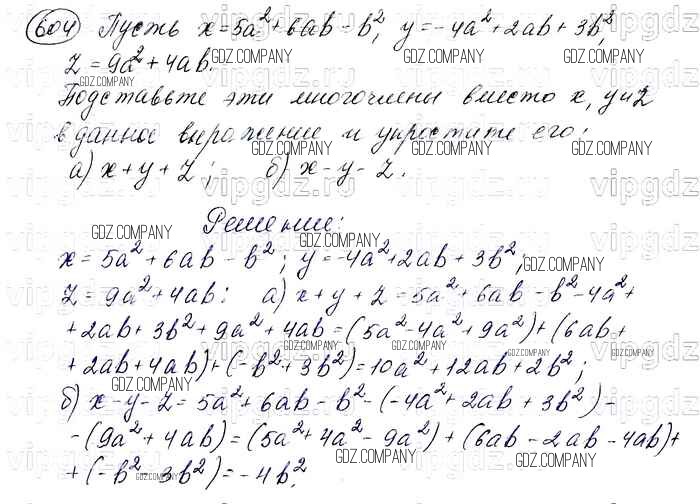 604 Пусть x=5a²+6ab-b², y=-4a²+2ab+3b²,
z=9a²+4ab.
Подставьте эти многочлены вместо x, y и z
в данное выражение и упростите его:
а) x+y+z; б) x-y-z.
Решение:
x=5a²+6ab-b²; y=-4a²+2ab+3b²;
z=9a²+4ab: а) x+y+z=5a²+6ab-b²-4a²+
+2ab+3b²+9a²+4ab=(5a²-4a²+9a²)+(6ab+
+2ab+4ab)+(-b²+3b²)=10a²+12ab+2b²;
б) x-y-z=5a²+6ab-b²-(-4a²+2ab+3b²)-
-(9a²+4ab)=(5a²+4a²-9a²)+(6ab-2ab-4ab)+
+(-b²-3b²)=-4b².
GDZ.COMPANY
vipgdz
vipgdz.ru